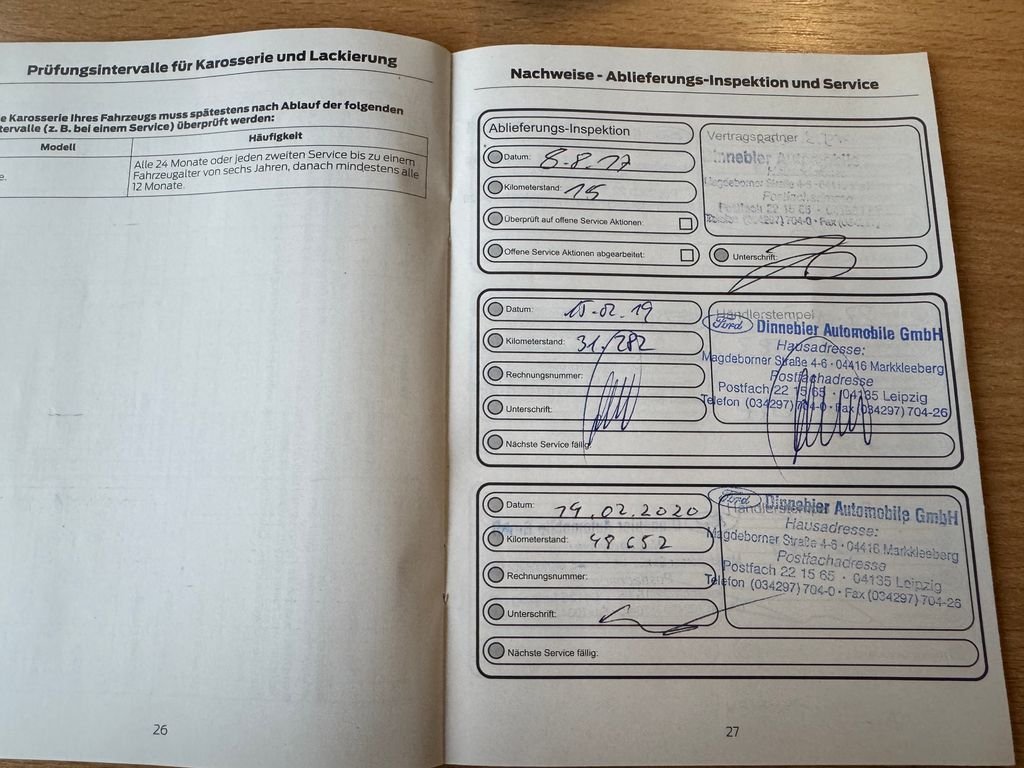 Prüfungsintervalle für Karosserie und Lackierung
e Karosserie Ihres Fahrzeugs muss spätestens nach Ablauf der folgenden
tervalle (z. B. bei einem Service) überprüft werden:
Modell
Häufigkeit
e.
Alle 24 Monate oder jeden zweiten Service bis zu einem
Fahrzeugalter von sechs Jahren, danach mindestens alle
12 Monate.
26
Nachweise - Ablieferungs-Inspektion und Service
Ablieferungs-Inspektion
Datum: 8.8.17
Kilometerstand: 15
Überprüft auf offene Service Aktionen:
Offene Service Aktionen abgearbeitet:
Vertragspartner
Dinnebier Automobile
Magdeborner Straße 4-6
Postfach 22 15 65
Telefon (034297) 704-0 · Fax (034297)
Unterschrift:
Datum: 15.02.19
Kilometerstand: 31.282
Rechnungsnummer:
Unterschrift:
Nächste Service fällig:
Händlerstempel
Ford Dinnebier Automobile GmbH
Hausadresse:
Magdeborner Straße 4-6 · 04416 Markkleeberg
Postfachadresse
Postfach 22 15 65 · 04135 Leipzig
Telefon (034297) 704-0 · Fax (034297) 704-26
Datum: 19.02.2020
Kilometerstand: 48 652
Rechnungsnummer:
Unterschrift:
Nächste Service fällig:
Händlerstempel
Ford Dinnebier Automobile GmbH
Hausadresse:
Magdeborner Straße 4-6 · 04416 Markkleeberg
Postfachadresse
Postfach 22 15 65 · 04135 Leipzig
Telefon (034297) 704-0 · Fax (034297) 704-26
27